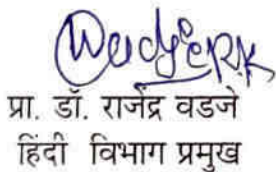 प्रा. डॉ. राजेंद्र वडजे
हिंदी विभाग प्रमुख